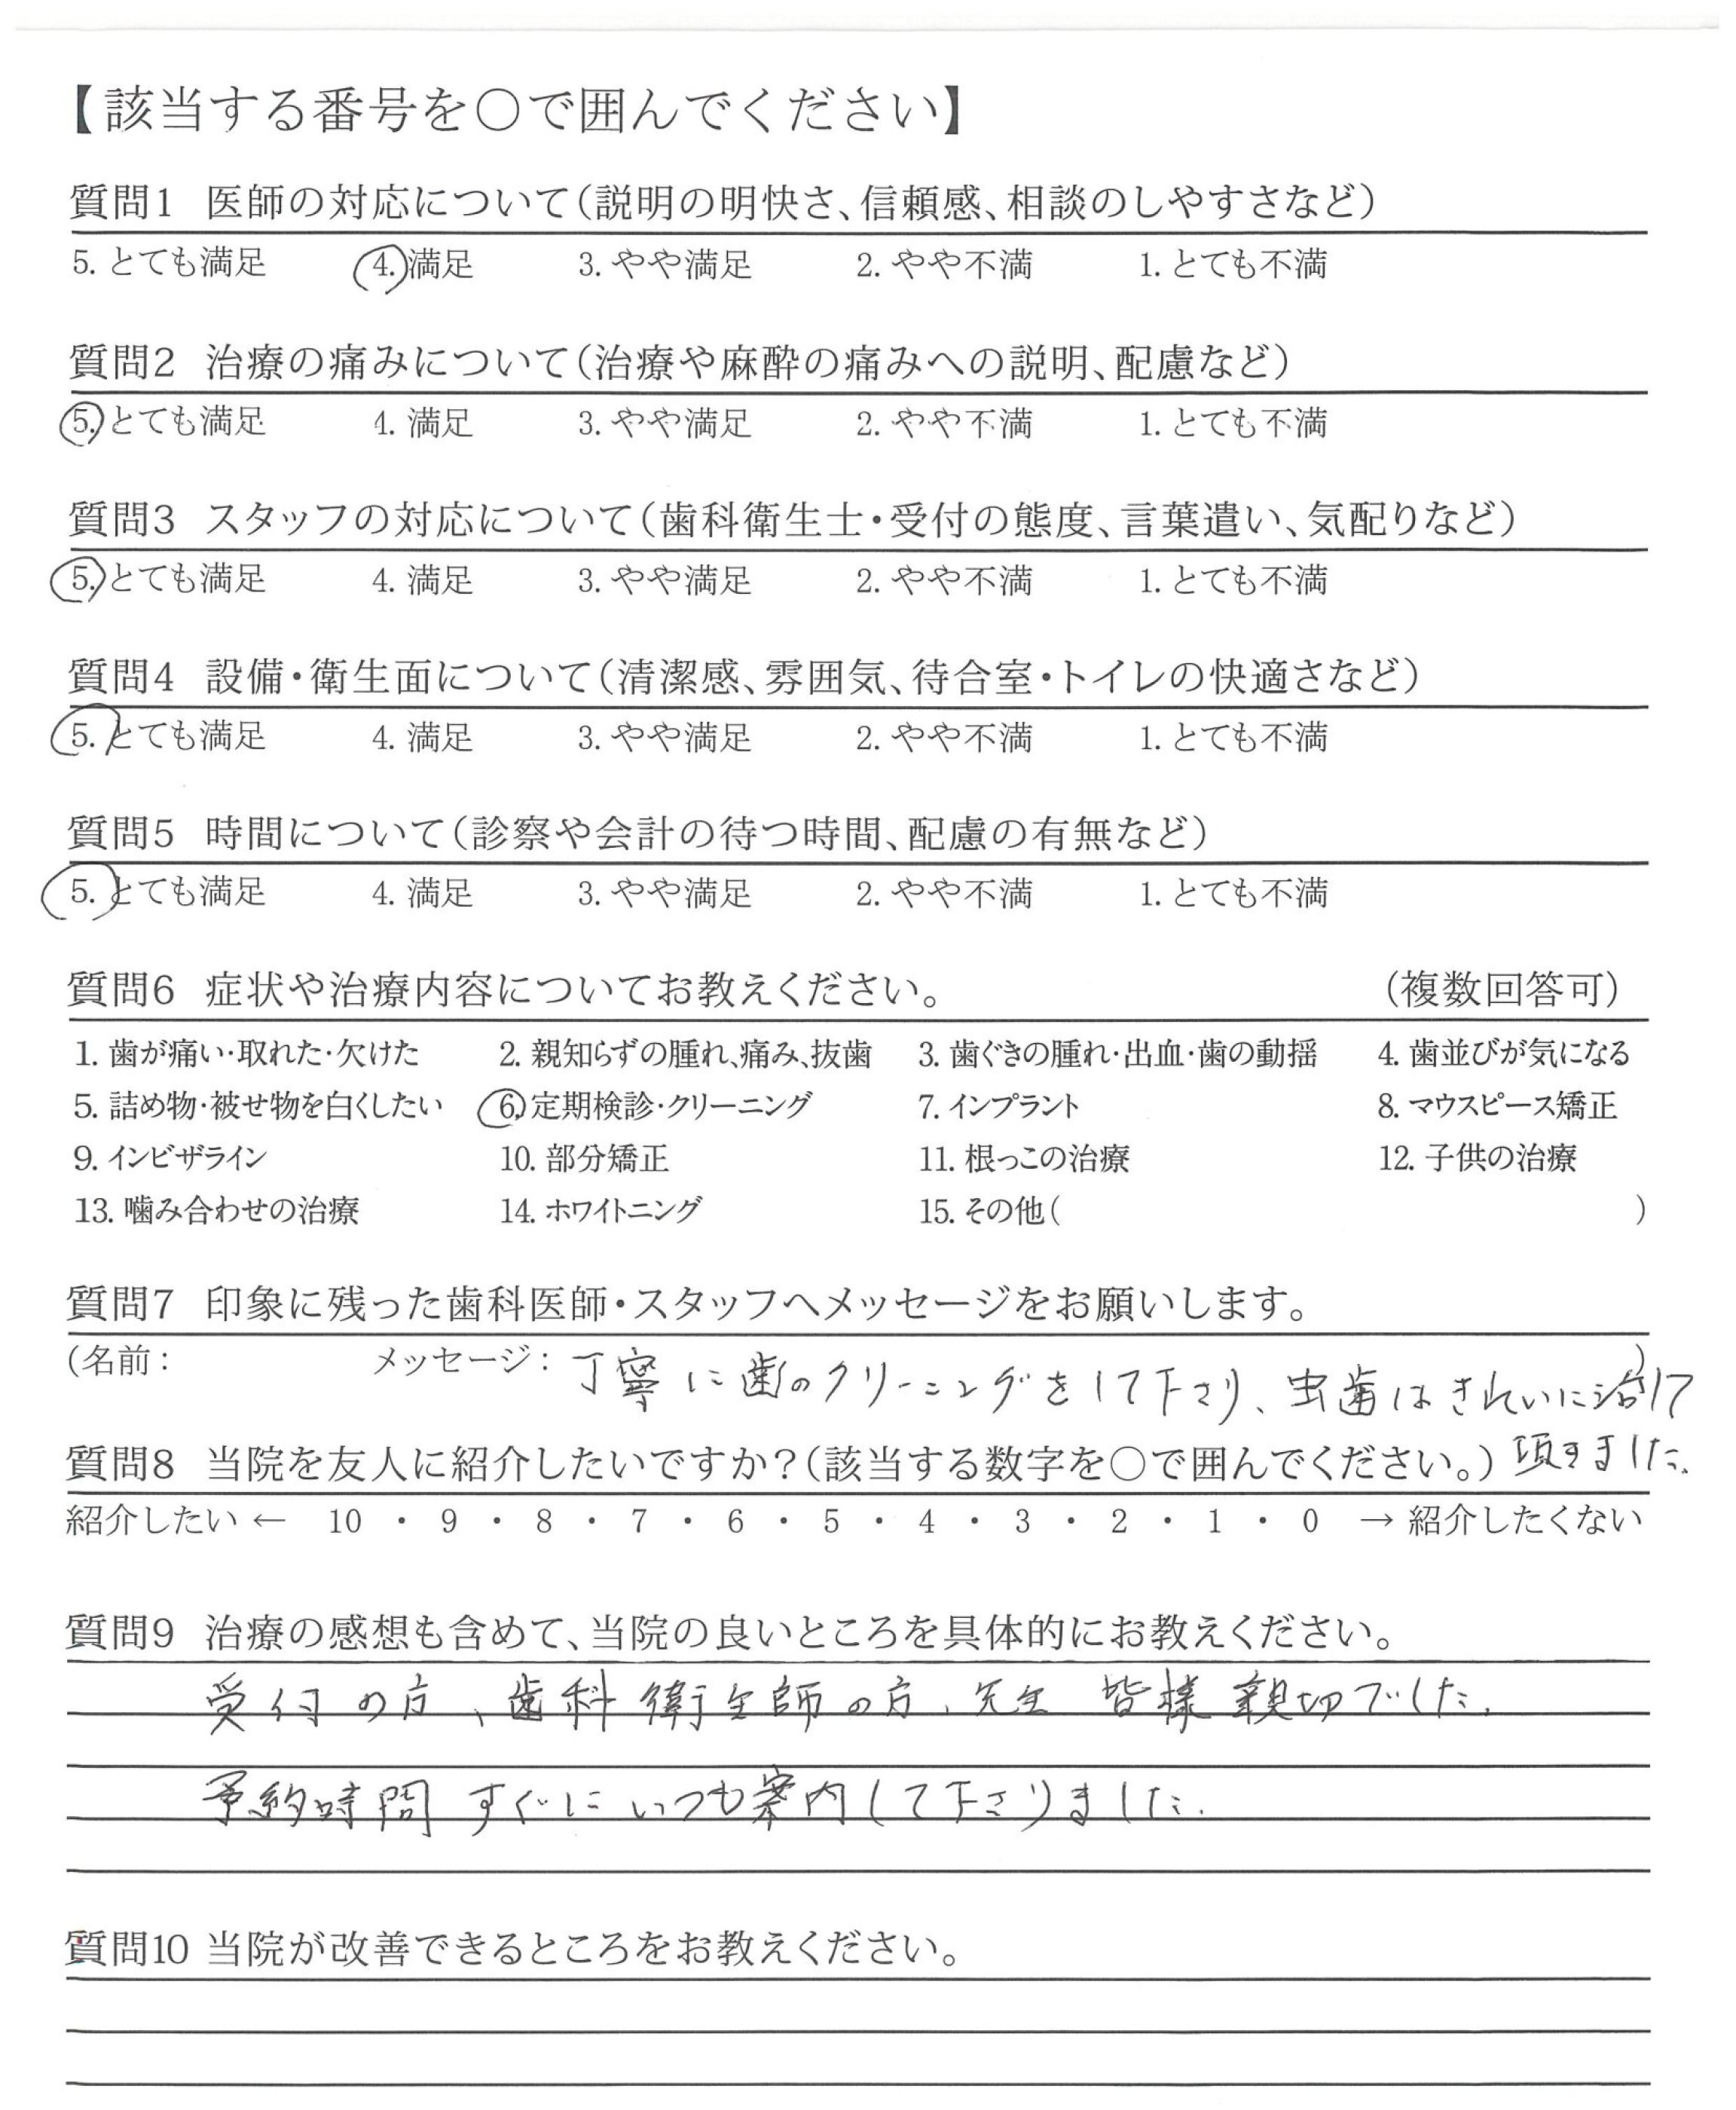 【該当する番号を○で囲んでください】
質問1 医師の対応について(説明の明快さ、信頼感、相談のしやすさなど)
5. とても満足 4. 満足 3. やや満足 2. やや不満 1. とても不満
質問2 治療の痛みについて(治療や麻酔の痛みへの説明、配慮など)
5. とても満足 4. 満足 3. やや満足 2. やや不満 1. とても不満
質問3 スタッフの対応について(歯科衛生士・受付の態度、言葉遣い、気配りなど)
5. とても満足 4. 満足 3. やや満足 2. やや不満 1. とても不満
質問4 設備・衛生面について(清潔感、雰囲気、待合室・トイレの快適さなど)
5. とても満足 4. 満足 3. やや満足 2. やや不満 1. とても不満
質問5 時間について(診察や会計の待つ時間、配慮の有無など)
5. とても満足 4. 満足 3. やや満足 2. やや不満 1. とても不満
質問6 症状や治療内容についてお教えください。 (複数回答可)
1. 歯が痛い・取れた・欠けた 2. 親知らずの腫れ、痛み、抜歯 3. 歯ぐきの腫れ・出血・歯の動揺 4. 歯並びが気になる
5. 詰め物・被せ物を白くしたい 6. 定期検診・クリーニング 7. インプラント 8. マウスピース矯正
9. インビザライン 10. 部分矯正 11. 根っこの治療 12. 子供の治療
13. 噛み合わせの治療 14. ホワイトニング 15. その他( )
質問7 印象に残った歯科医師・スタッフへメッセージをお願いします。
(名前: メッセージ: 丁寧に歯のクリーニングをして下さり、虫歯はきれいに治して )
頂きました。
質問8 当院を友人に紹介したいですか?(該当する数字を○で囲んでください。)
紹介したい ← 10 ・ 9 ・ 8 ・ 7 ・ 6 ・ 5 ・ 4 ・ 3 ・ 2 ・ 1 ・ 0 → 紹介したくない
質問9 治療の感想も含めて、当院の良いところを具体的にお教えください。
受付の方、歯科衛生師の方、先生 皆様親切でした。
予約時間 すぐに いつも案内して下さりました。
質問10 当院が改善できるところをお教えください。